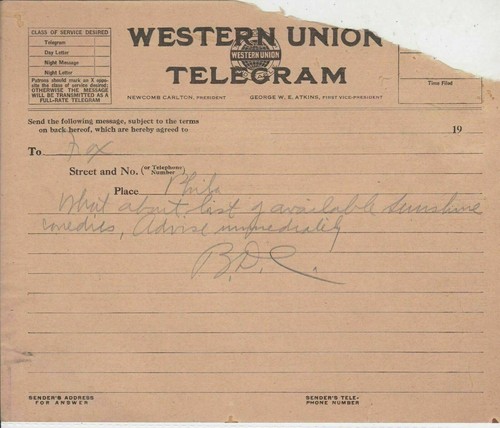 CLASS OF SERVICE DESIRED
Telegram
Day Letter
Night Message
Night Letter
Patrons should mark an X oppo-
site the class of service desired;
OTHERWISE THE MESSAGE
WILL BE TRANSMITTED AS A
FULL-RATE TELEGRAM
WESTERN UNION
WESTERN UNION
TELEGRAM
NEWCOMB CARLTON, PRESIDENT
GEORGE W. E. ATKINS, FIRST VICE-PRESIDENT
Time Filed
Send the following message, subject to the terms
on back hereof, which are hereby agreed to
19
To Fox
Street and No. (or Telephone Number)
Place Phila
What about list of available Sunshine
comedies, Advise immediately
B.D.C.
SENDER'S ADDRESS
FOR ANSWER
SENDER'S TELE-
PHONE NUMBER